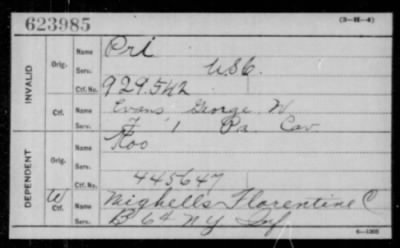 623985 (3—III—4)
INVALID
Orig. Name Pri
Serv. USC.
Ctf. No. 929.542
Ctf. Name Evans, George W
Serv. F 1 Pa. Cav
DEPENDENT
Orig. Name Roo
Serv.
Ctf. No. 445647
W Ctf. Name Mighells Florentine C
Serv. B 64 NY Inf